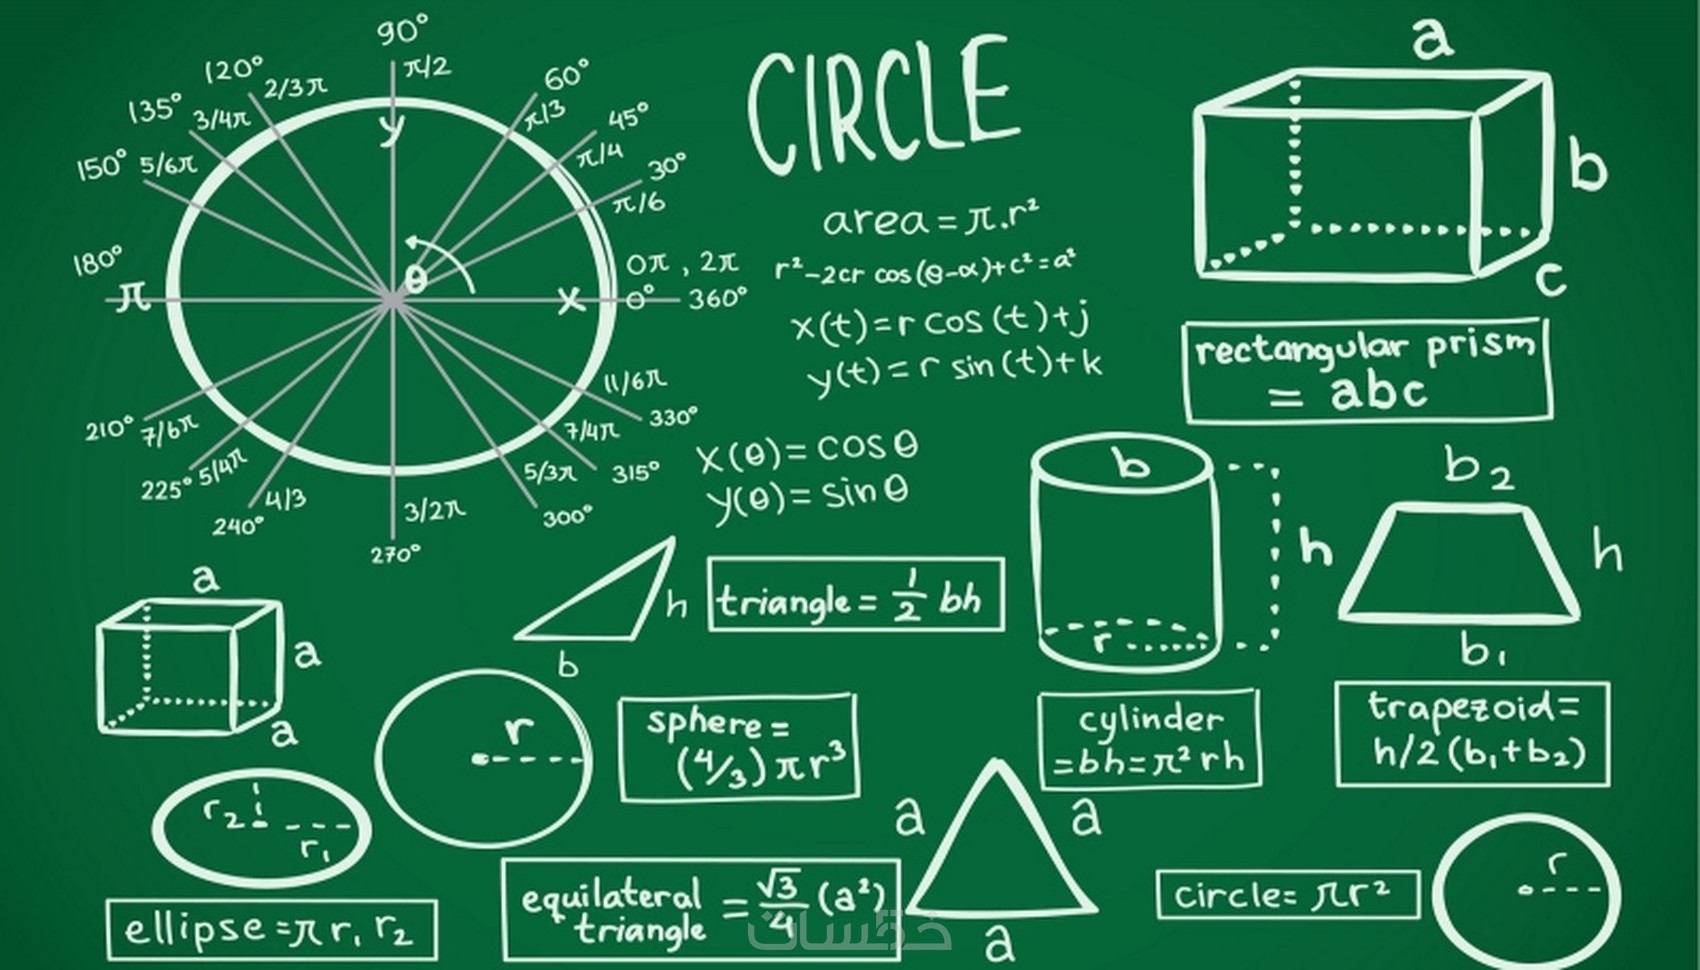 90°
π/2
120°
2/3π
60°
π/3
135°
3/4π
45°
π/4
150°
5/6π
30°
π/6
y
180°
π
θ
x
0π , 2π
0°
360°
11/6π
330°
210°
7/6π
7/4π
315°
225°
5/4π
5/3π
300°
240°
4/3
3/2π
270°
CIRCLE
area = π.r²
r²-2cr cos(θ-α)+c²=a²
x(t)=r cos(t)+j
y(t)=r sin(t)+k
x(θ)=cosθ
y(θ)=sinθ
a
b
c
rectangular prism
= abc
b
h
r
cylinder
=bh=π² rh
b₂
h
b₁
trapezoid=
h/2 (b₁+b₂)
h
b
triangle = 1/2 bh
a
a
a
r
sphere =
(4/3) π r³
r₂
r₁
ellipse =π r₁ r₂
a
a
a
equilateral
triangle
= √3/4 (a²)
circle= πr²
r
خمسات